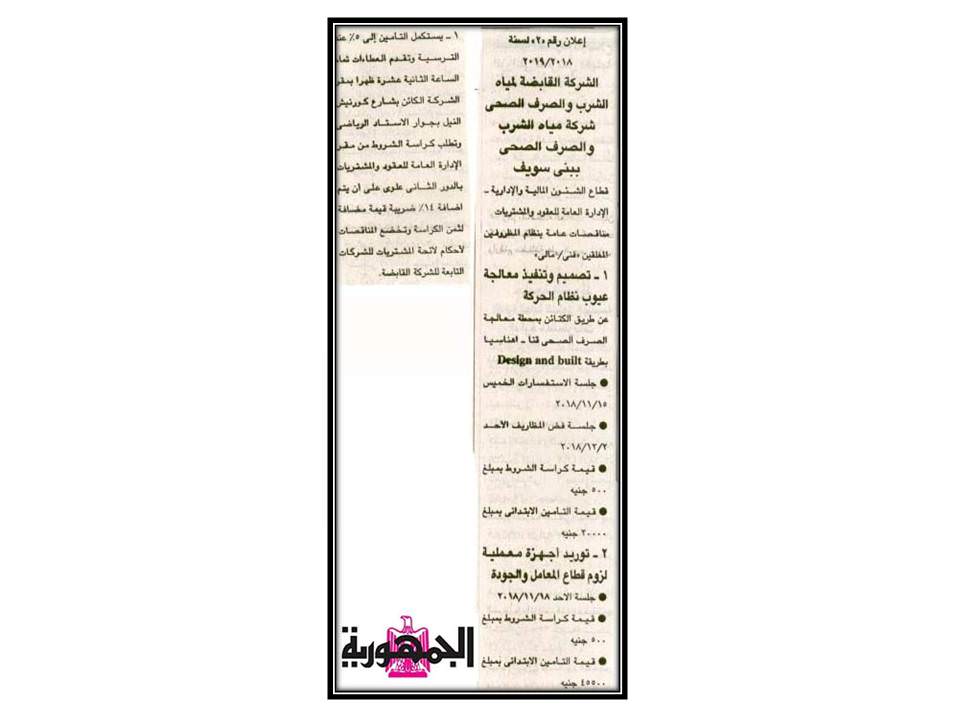 إعلان رقم «٢» لسنة
٢٠١٩/٢٠١٨
الشركة القابضة لمياه
الشرب والصرف الصحى
شركة مياه الشرب
والصرف الصحى
ببنى سويف
قطاع الشئون المالية والإدارية -
الإدارة العامة للعقود والمشتريات
مناقصات عامة بنظام المظروفين
المغلقين «فنى/مالى»
١ - تصميم وتنفيذ معالجة
عيوب نظام الحركة
عن طريق الكتائن بمحطة معالجة
الصرف الصحى قنا - اهناسيا
بطريقة Design and built
● جلسة الاستفسارات الخميس
٢٠١٨/١١/١٥
● جلسة فض المظاريف الأحد
٢٠١٨/١٢/٢
● قيمة كراسة الشروط بمبلغ
٥٠٠ جنيه
● قيمة التأمين الابتدائى بمبلغ
٢٠٠٠٠ جنيه
٢ - توريد أجهزة معملية
لزوم قطاع المعامل والجودة
● جلسة الاحد ٢٠١٨/١١/١٨
● قيمة كراسة الشروط بمبلغ
٥٠٠ جنيه
● قيمة التأمين الابتدائى بمبلغ
٤٥٥٠٠ جنيه
١ - يستكمل التأمين إلى ٥٪ عند
الترسية وتقدم العطاءات تمام
الساعة الثانية عشرة ظهرا بمقر
الشركة الكائن بشارع كورنيش
النيل بجوار الاستاد الرياضى
وتطلب كراسة الشروط من مقر
الإدارة العامة للعقود والمشتريات
بالدور الثانى علوى على أن يتم
اضافة ١٤٪ ضريبة قيمة مضافة
لثمن الكراسة وتخضع المناقصات
لأحكام لائحة المشتريات للشركات
التابعة للشركة القابضة.
الجمهورية